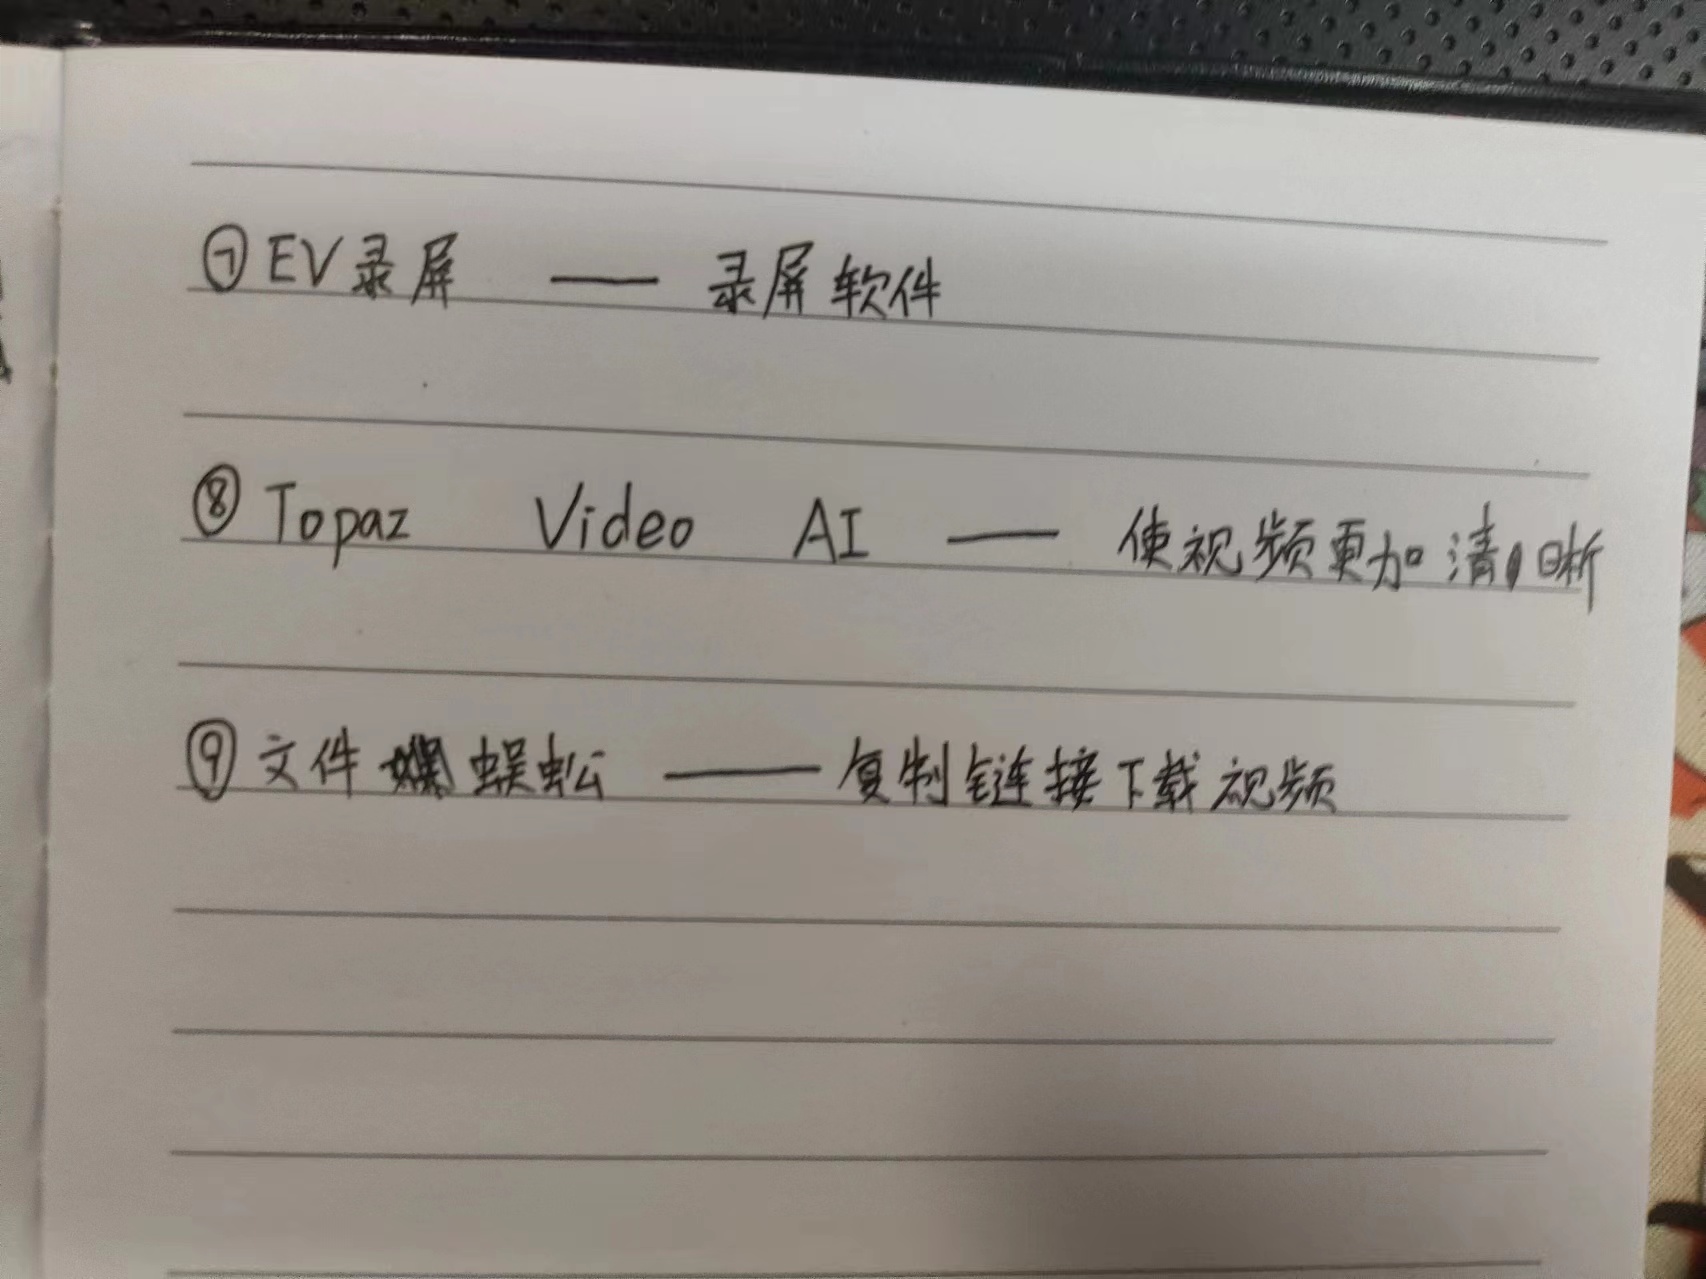 ⑦EV录屏 —— 录屏软件
⑧Topaz Video AI —— 使视频更加清晰
⑨文件蜈蚣 —— 复制链接下载视频